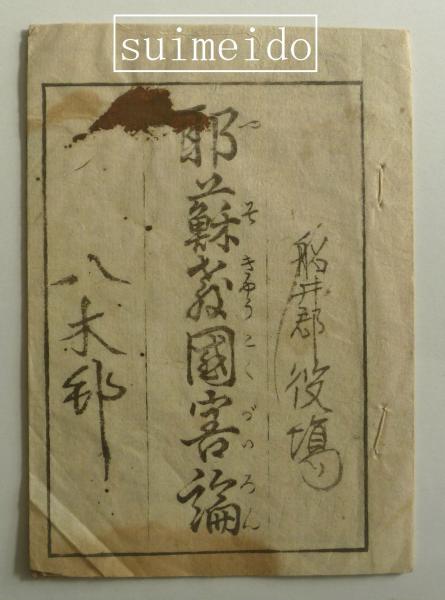 suimeido
船井郡役場
耶蘇教國害論
やそきやうこくがいろん
八木邨